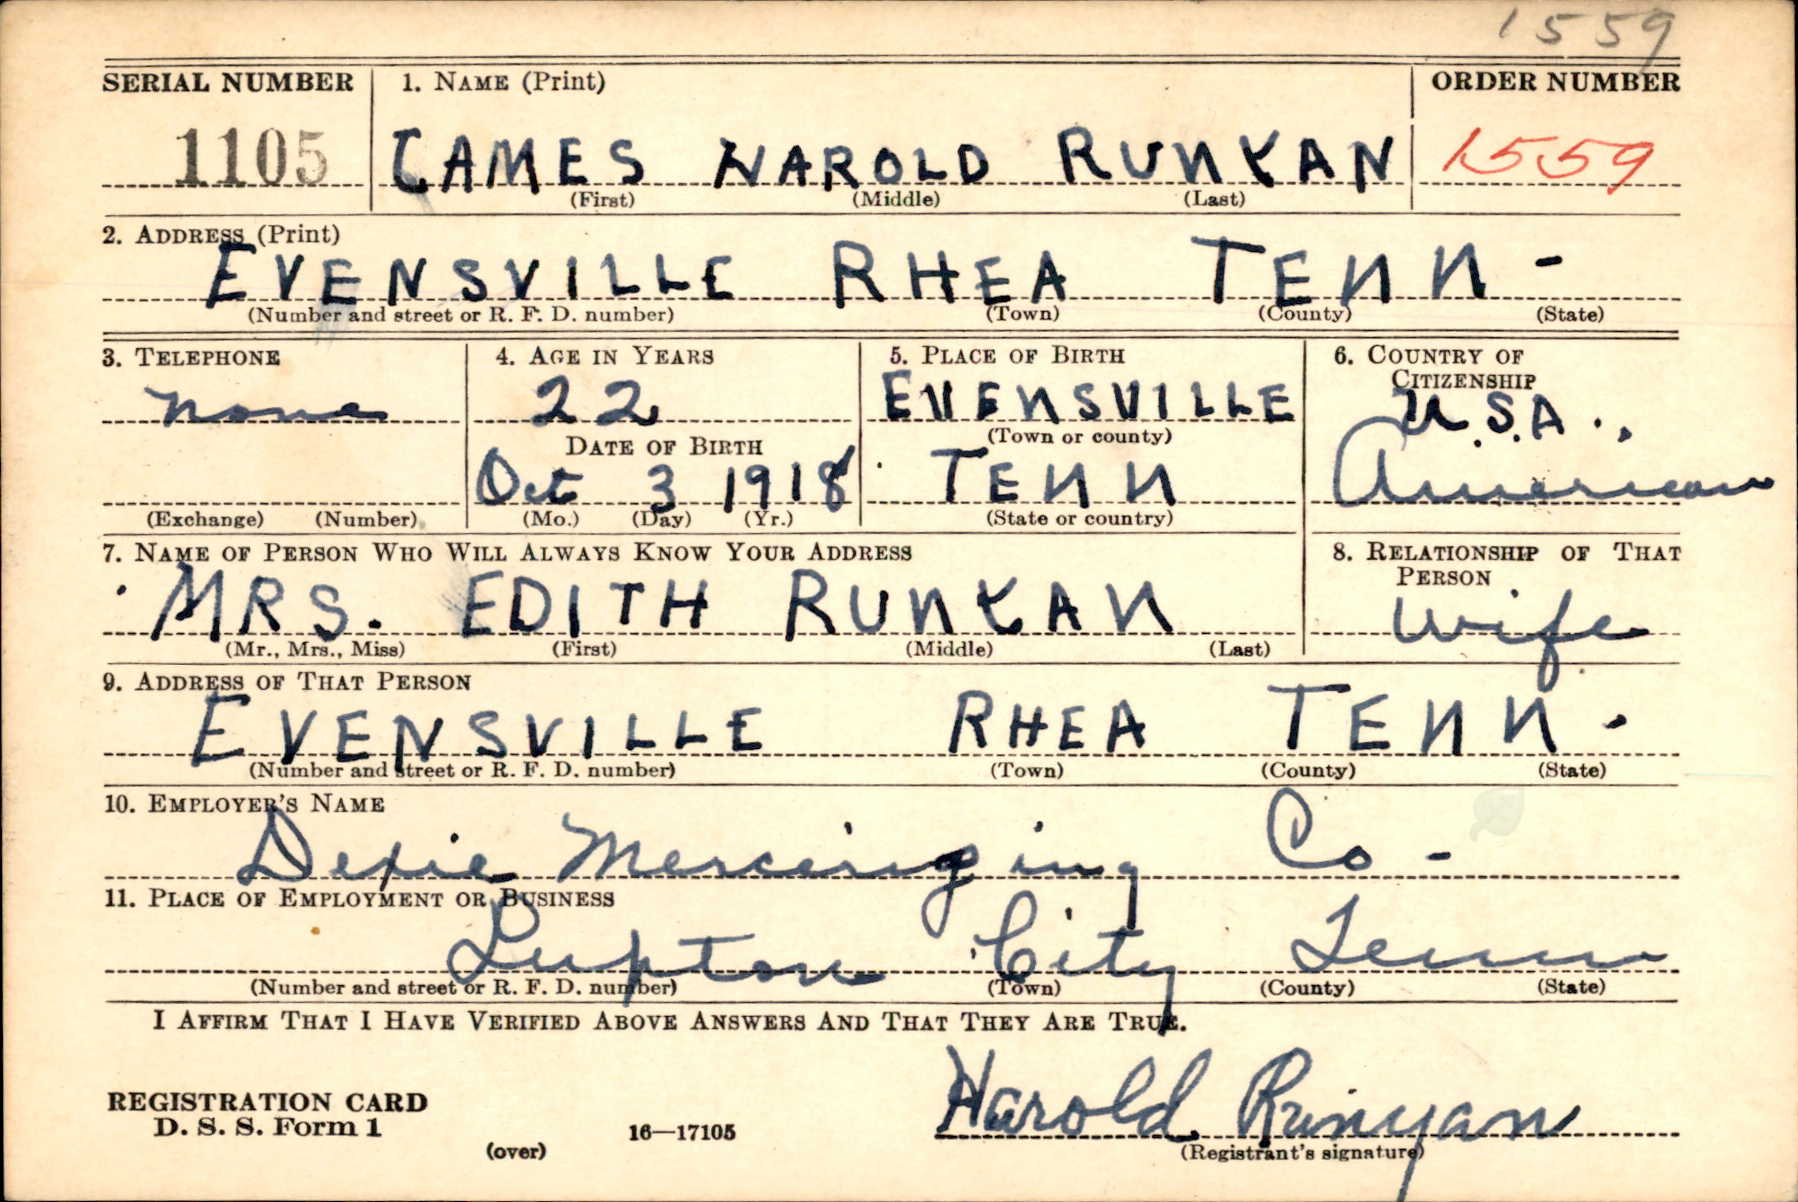 1559
SERIAL NUMBER 1. NAME (Print) ORDER NUMBER
1105 JAMES HAROLD RUNYAN 1559
(First) (Middle) (Last)
2. ADDRESS (Print)
EVENSVILLE RHEA TENN-
(Number and street or R. F. D. number) (Town) (County) (State)
3. TELEPHONE 4. AGE IN YEARS 5. PLACE OF BIRTH 6. COUNTRY OF CITIZENSHIP
none 22 EVENSVILLE U.S.A.
DATE OF BIRTH (Town or county)
Oct 3 1918 TENN American
(Exchange) (Number) (Mo.) (Day) (Yr.) (State or country)
7. NAME OF PERSON WHO WILL ALWAYS KNOW YOUR ADDRESS 8. RELATIONSHIP OF THAT PERSON
MRS. EDITH RUNYAN wife
(Mr., Mrs., Miss) (First) (Middle) (Last)
9. ADDRESS OF THAT PERSON
EVENSVILLE RHEA TENN.
(Number and street or R. F. D. number) (Town) (County) (State)
10. EMPLOYER'S NAME
Dexie Mercerizing Co-
11. PLACE OF EMPLOYMENT OR BUSINESS
Lupton City Tenn
(Number and street or R. F. D. number) (Town) (County) (State)
I AFFIRM THAT I HAVE VERIFIED ABOVE ANSWERS AND THAT THEY ARE TRUE.
Harold Runyan
REGISTRATION CARD
D. S. S. Form 1
(over) 16—17105 (Registrant's signature)